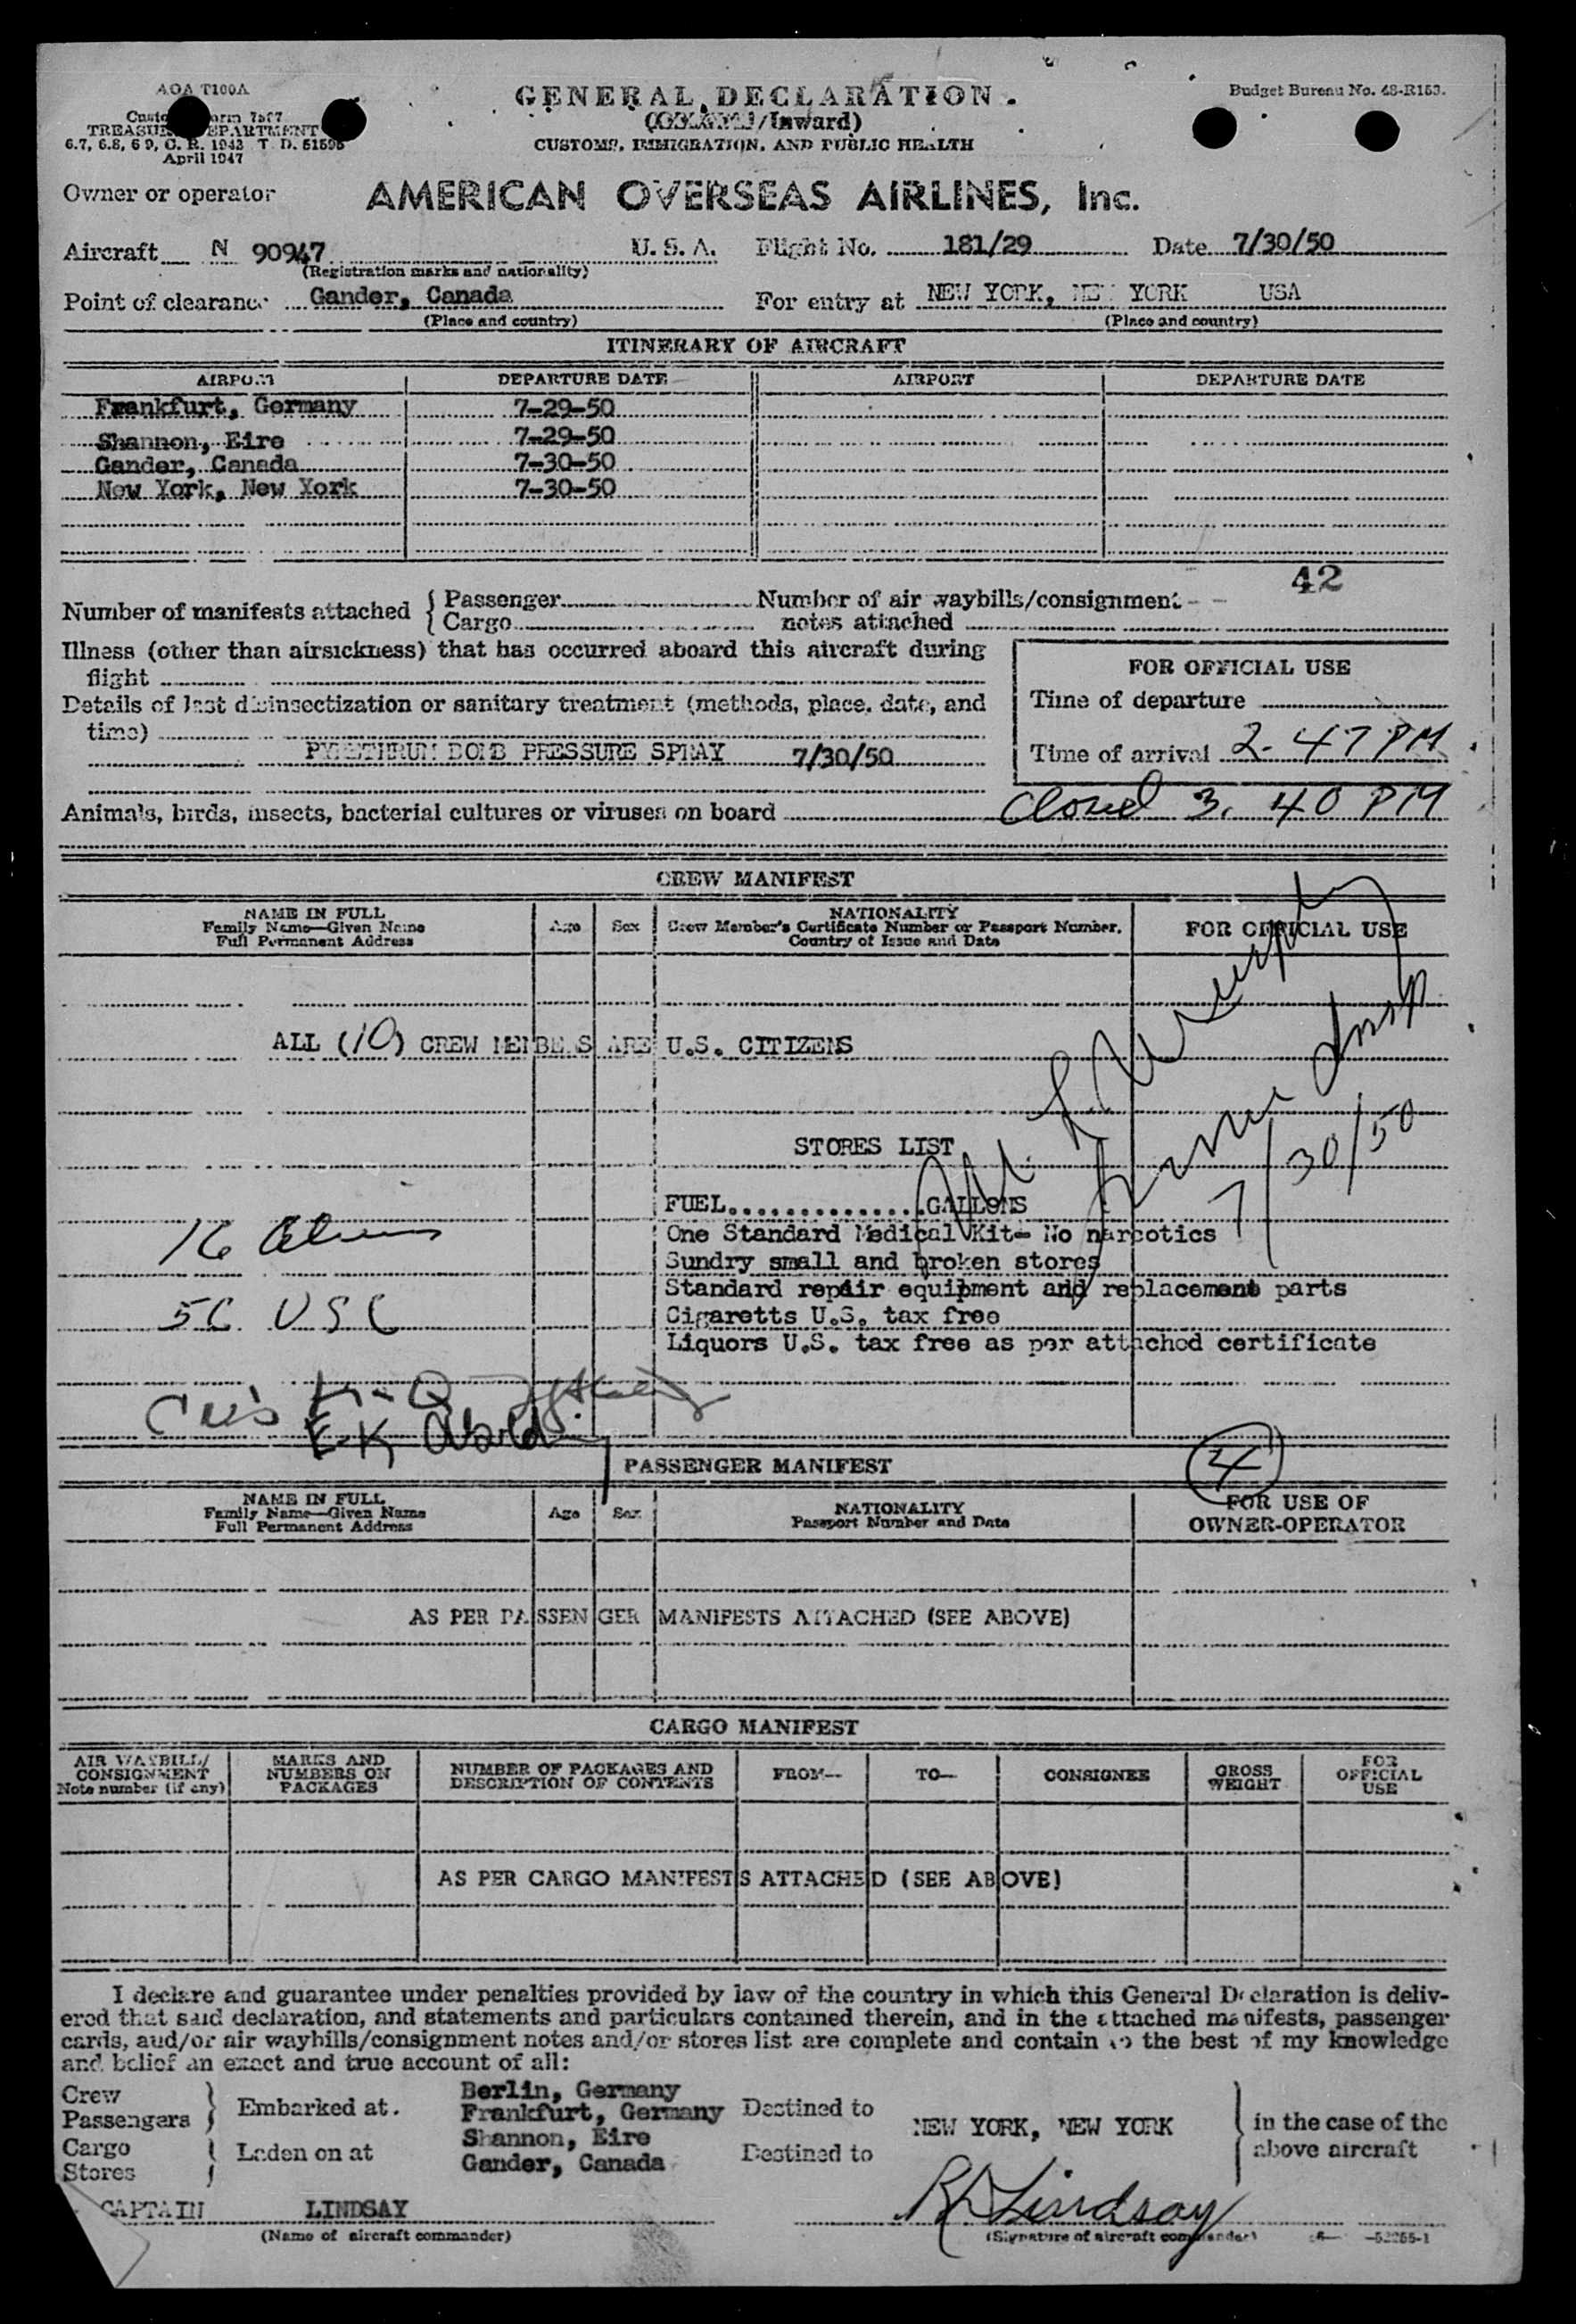 AOA T100A
Form 7507
TREASURY DEPARTMENT
6.7, 6.8, 6 9, C. R. 1943 T. D. 51595
April 1947
Budget Bureau No. 48-R153.
GENERAL DECLARATION
(/Inward)
CUSTOMS, IMMIGRATION, AND PUBLIC HEALTH
Owner or operator AMERICAN OVERSEAS AIRLINES, Inc.
Aircraft N 90947 U. S. A. Flight No. 181/29 Date 7/30/50
(Registration marks and nationality)
Point of clearance Gander, Canada For entry at NEW YORK, NEW YORK USA
(Place and country) (Place and country)
ITINERARY OF AIRCRAFT
AIRPORT DEPARTURE DATE AIRPORT DEPARTURE DATE
Frankfurt, Germany 7-29-50
Shannon, Eire 7-29-50
Gander, Canada 7-30-50
New York, New York 7-30-50
42
Number of manifests attached { Passenger Number of air waybills/consignment
Cargo notes attached
Illness (other than airsickness) that has occurred aboard this aircraft during
flight
FOR OFFICIAL USE
Time of departure
Details of last disinsectization or sanitary treatment (methods, place, date, and
time)
PYRETHRUM BOMB PRESSURE SPRAY 7/30/50
Time of arrival 2-47 PM
Animals, birds, insects, bacterial cultures or viruses on board
Closed 3.40 PM
CREW MANIFEST
NAME IN FULL
Family Name—Given Name
Full Permanent Address
Age Sex
NATIONALITY
Crew Member's Certificate Number or Passport Number,
Country of Issue and Date
FOR OFFICIAL USE
ALL (10) CREW MEMBERS ARE U.S. CITIZENS
STORES LIST
7/30/50
FUEL...............GALLONS
One Standard Medical Kit- No narcotics
Sundry small and broken stores
Standard repair equipment and replacement parts
Cigaretts U.S. tax free
Liquors U.S. tax free as per attached certificate
16 Aliens
56 USC
PASSENGER MANIFEST
4
NAME IN FULL
Family Name—Given Name
Full Permanent Address
Age Sex
NATIONALITY
Passport Number and Date
FOR USE OF
OWNER-OPERATOR
AS PER PASSENGER MANIFESTS ATTACHED (SEE ABOVE)
CARGO MANIFEST
AIR WAYBILL/
CONSIGNMENT
Note number (if any)
MARKS AND
NUMBERS ON
PACKAGES
NUMBER OF PACKAGES AND
DESCRIPTION OF CONTENTS
FROM— TO— CONSIGNEE
GROSS
WEIGHT
FOR
OFFICIAL
USE
AS PER CARGO MANIFESTS ATTACHED (SEE ABOVE)
I declare and guarantee under penalties provided by law of the country in which this General Declaration is deliv-
ered that said declaration, and statements and particulars contained therein, and in the attached manifests, passenger
cards, and/or air waybills/consignment notes and/or stores list are complete and contain to the best of my knowledge
and belief an exact and true account of all:
Crew
Passengers
Embarked at.
Cargo
Stores
Laden on at
Berlin, Germany
Frankfurt, Germany
Shannon, Eire
Gander, Canada
Destined to
Destined to
NEW YORK, NEW YORK
in the case of the
above aircraft
CAPTAIN LINDSAY
(Name of aircraft commander)
R Lindsay
(Signature of aircraft commander)